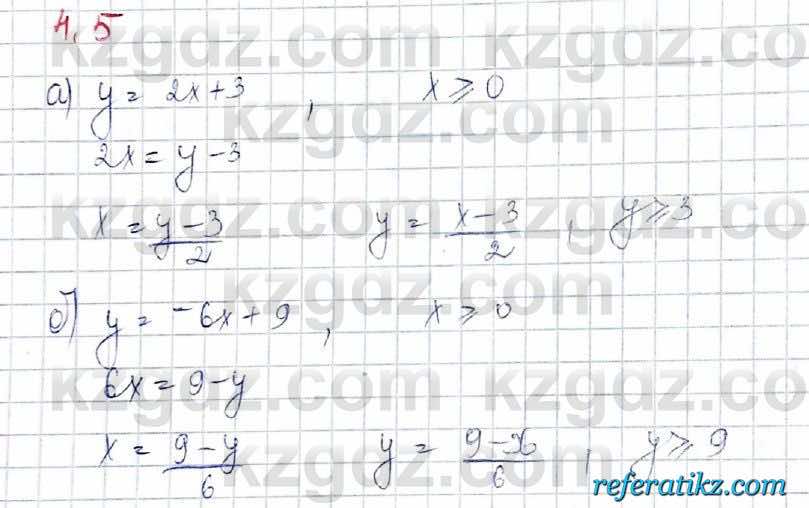 4.5
kzgdz.com kzgdz.com
а) y = 2x + 3 , x ⩾ 0
kzgdz.com
2x = y - 3
x = (y - 3)/2 y = (x - 3)/2 , y ⩾ 3
kzgdz.com kzgdz.com
kzgdz.com
б) y = -6x + 9 , x ⩾ 0
6x = 9 - y
kzgdz.com kzgdz.com
x = (9 - y)/6 y = (9 - x)/6 , y ⩾ 9
kzgdz.com
referatikz.com